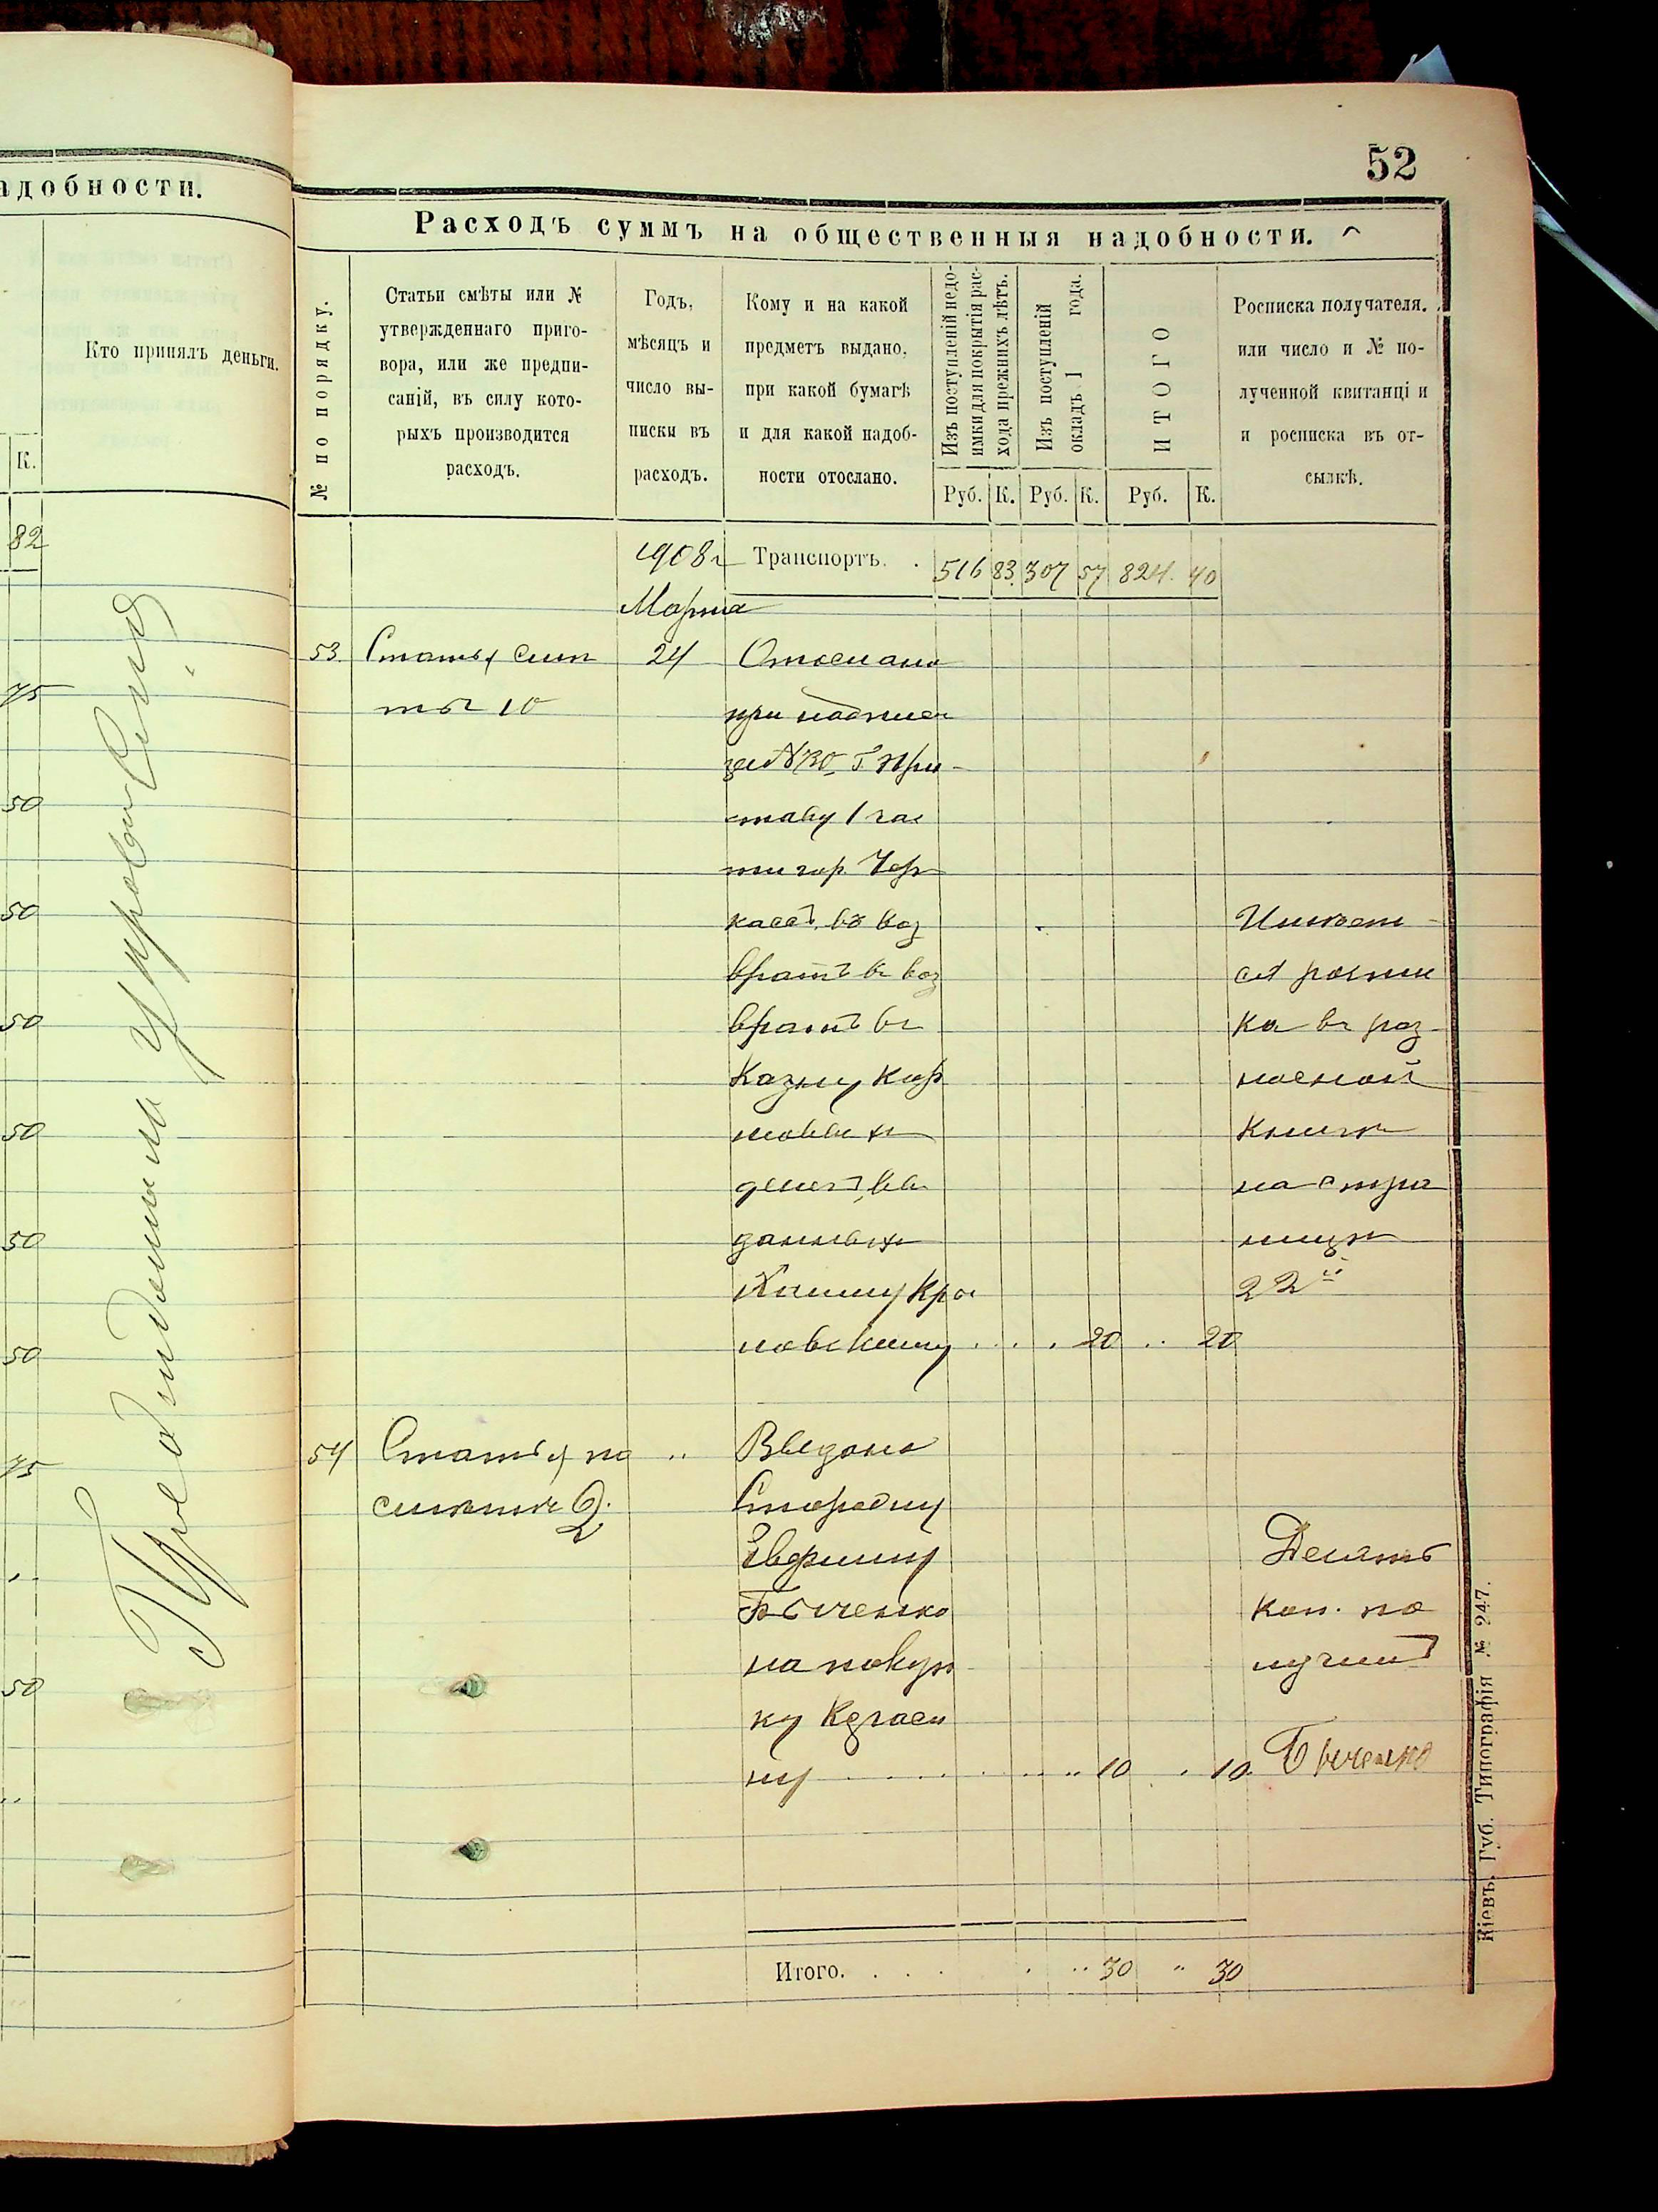 адобности.
Кто принялъ деньги.
К.
82
75
50
50
50
50
50
50
75
50
52
Расходъ суммъ на общественныя надобности.
№ по порядку.
Статьи смѣты или №
утвержденнаго приго-
вора, или же предпи-
саній, въ силу кото-
рыхъ производится
расходъ.
Годъ,
мѣсяцъ и
число вы-
писки въ
расходъ.
Кому и на какой
предметъ выдано,
при какой бумагѣ
и для какой надоб-
ности отослано.
Изъ поступленій недо-
имки для покрытія рас-
хода прежнихъ лѣтъ.
Изъ поступленій
окладъ 1 года.
ИТОГО
Росписка получателя.
или число и № по-
лученной квитанціи
и росписка въ от-
сылкѣ.
Руб. К. Руб. К. Руб. К.
1908 г Транспортъ. 516 83 307 57 824 40
Марта
53. Статья смѣ 24 Отослано
ты 10 при надписи
за № 30 Г. При-
ставу 1 час
ти гор. Чер
касъ, въ воз
вратъ въ воз
вратъ въ
Казну кор
мовыхъ
денегъ, вы
данныхъ
новскому 20 20
Имѣет-
ся роспис
ка въ раз-
носной
книгѣ
на стра
ницѣ
22й
54 Статья по " Выдано
смѣтѣ 2. Старосту
на покуп
ку
ну 10 10
Десять
коп. по
лучилъ
Итого. 30 " 30
Кіевъ, Губ. Типографія № 247.